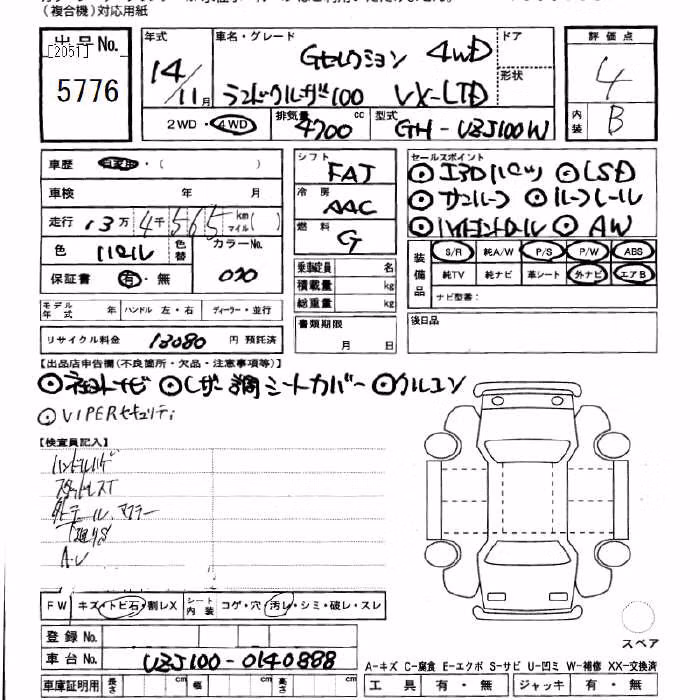 (複合機)対応用紙
出品No.
[2051]
5776
年式
14/11月
車名・グレード
Gセレクション 4WD
ランドクルーザー100 VX-LTD
ドア
形状
評価点
4
内装
B
2WD・4WD
排気量
4700 cc
型式
GH-UZJ100W
車歴 自家用・( )
車検 年 月
走行 13万 4千 565 km マイル ( )
色 パール
色替
カラーNo.
070
保証書 有・無
モデル年式 年
ハンドル 左・右
ディーラー・並行
リサイクル料金 13080 円 預託済
シフト FAT
冷房 AAC
燃料 G
乗車定員 名
積載量 kg
総重量 kg
書類期限
月 日
セールスポイント
◎エアロパーツ ◎LSD
◎サンルーフ ◎ルーフレール
◎ハイトコントロール ◎AW
装備品
S/R 純A/W P/S P/W ABS
純TV 純ナビ 革シート 外ナビ エアB
ナビ型番:
後日品
【出品店申告欄(不良箇所・欠品・注意事項等)】
◎ネットナビ ◎レザー調シートカバー ◎クルコン
◎VIPERセキュリティ
【検査員記入】
ハンドルハゲ
スタッドレスT
外テール、マフラー
下廻りS
A・U
FW キズ・トビ石・割レX
シート内装
コゲ・穴・汚レ・シミ・破レ・スレ
登録No.
車台No. UZJ100-0140888
車庫証明用 長さ cm 幅 cm 高さ cm
スペア
A-キズ C-腐食 E-エクボ S-サビ U-凹ミ W-補修 XX-交換済
工具 有・無
ジャッキ 有・無